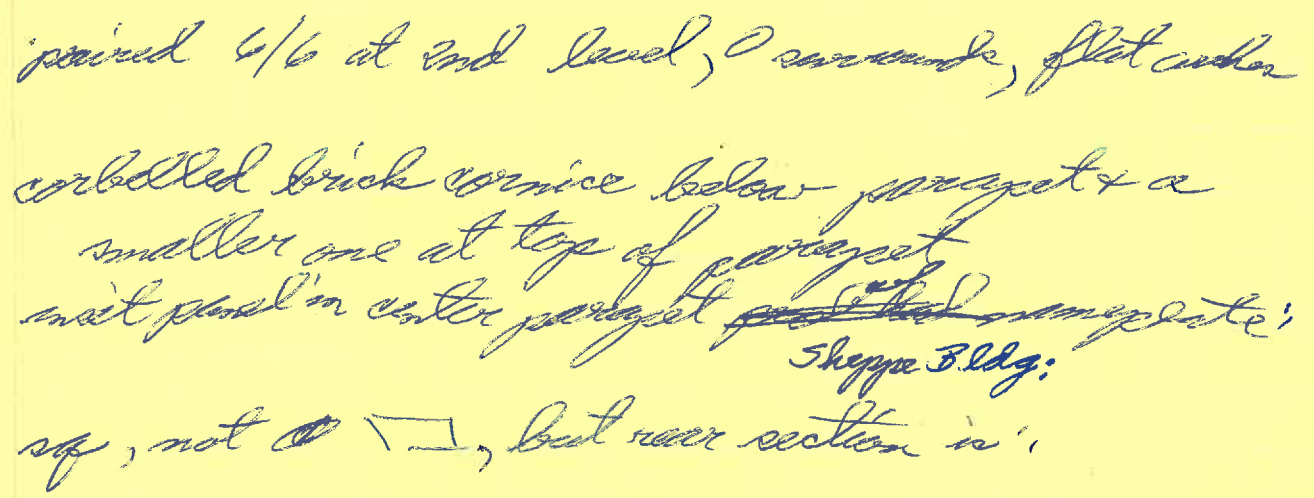 paired 6/6 at 2nd level, 0 surrounds, flat arches
corbelled brick cornice below parapet + a
smaller one at top of parapet
inset panel in center parapet w/ nameplate:
Sheppe Bldg:
sq, not, but rear section is.